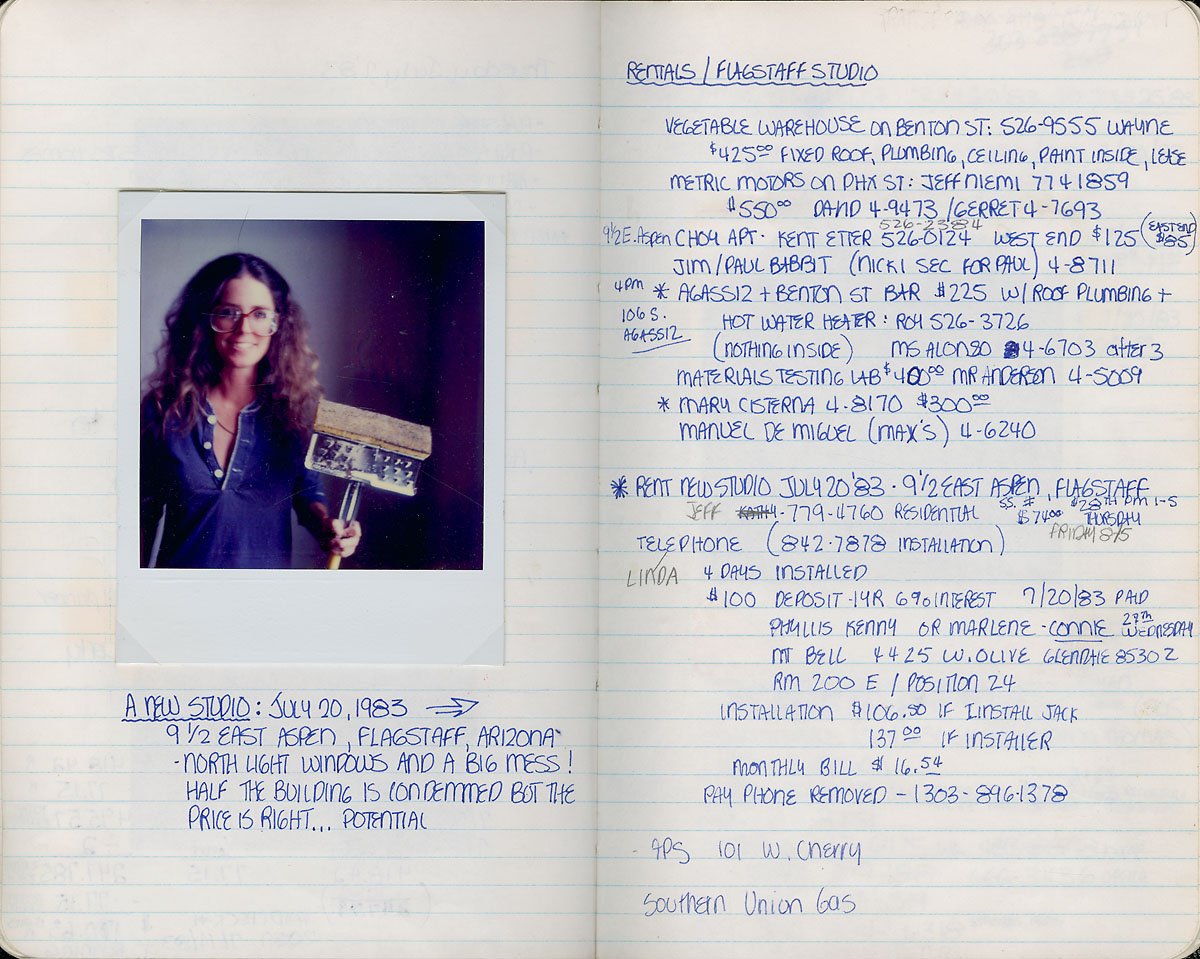 A NEW STUDIO: JULY 20, 1983 →
9 1/2 EAST ASPEN, FLAGSTAFF, ARIZONA
-NORTH LIGHT WINDOWS AND A BIG MESS!
HALF THE BUILDING IS CONDEMMED BUT THE
PRICE IS RIGHT... POTENTIAL
RENTALS / FLAGSTAFF STUDIO
VEGETABLE WAREHOUSE ON BENTON ST: 526-9555 WAYNE
$425.00 FIXED ROOF, PLUMBING, CEILING, PAINT INSIDE, LEASE
METRIC MOTORS ON PHX ST: JEFF NIEMI 774 1859
$550.00 DAVID 4-9473 / GERRET 4-7693
526-2384
9 1/2 E. Aspen CHOY APT. KENT ETTER 526-0124 WEST END $125 (EAST END $85)
JIM/PAUL BABBIT (NICKI SEC FOR PAUL) 4-8711
4PM * AGASSIZ + BENTON ST BAR $225 W/ROOF PLUMBING +
106 S. AGASSIZ HOT WATER HEATER: ROY 526-3726
(NOTHING INSIDE) MS ALONSO 4-6703 after 3
MATERIALS TESTING LAB $400.00 MR ANDERSON 4-5009
* MARY CISTERNA 4-8170 $300.00
MANUEL DE MIGUEL (MAX'S) 4-6240
* RENT NEW STUDIO JULY 20 '83 - 9 1/2 EAST ASPEN, FLAGSTAFF
JEFF 779-4760 RESIDENTIAL SS. # $74.00 28TH PM 1-5 THURSDAY
FRIDAY 8/5
TELEPHONE (842-7878 INSTALLATION)
LINDA 4 DAYS INSTALLED
$100 DEPOSIT-1YR 6% INTEREST 7/20/83 PAID
PHYLLIS KENNY OR MARLENE - CONNIE 27th WEDNESDAY
MT BELL 4425 W. OLIVE GLENDALE 85302
RM 200 E / POSITION 24
INSTALLATION $106.50 IF I INSTALL JACK
137.00 IF INSTALLER
MONTHLY BILL $16.54
PAY PHONE REMOVED - 1303-896-1378
- APS 101 W. Cherry
Southern Union Gas